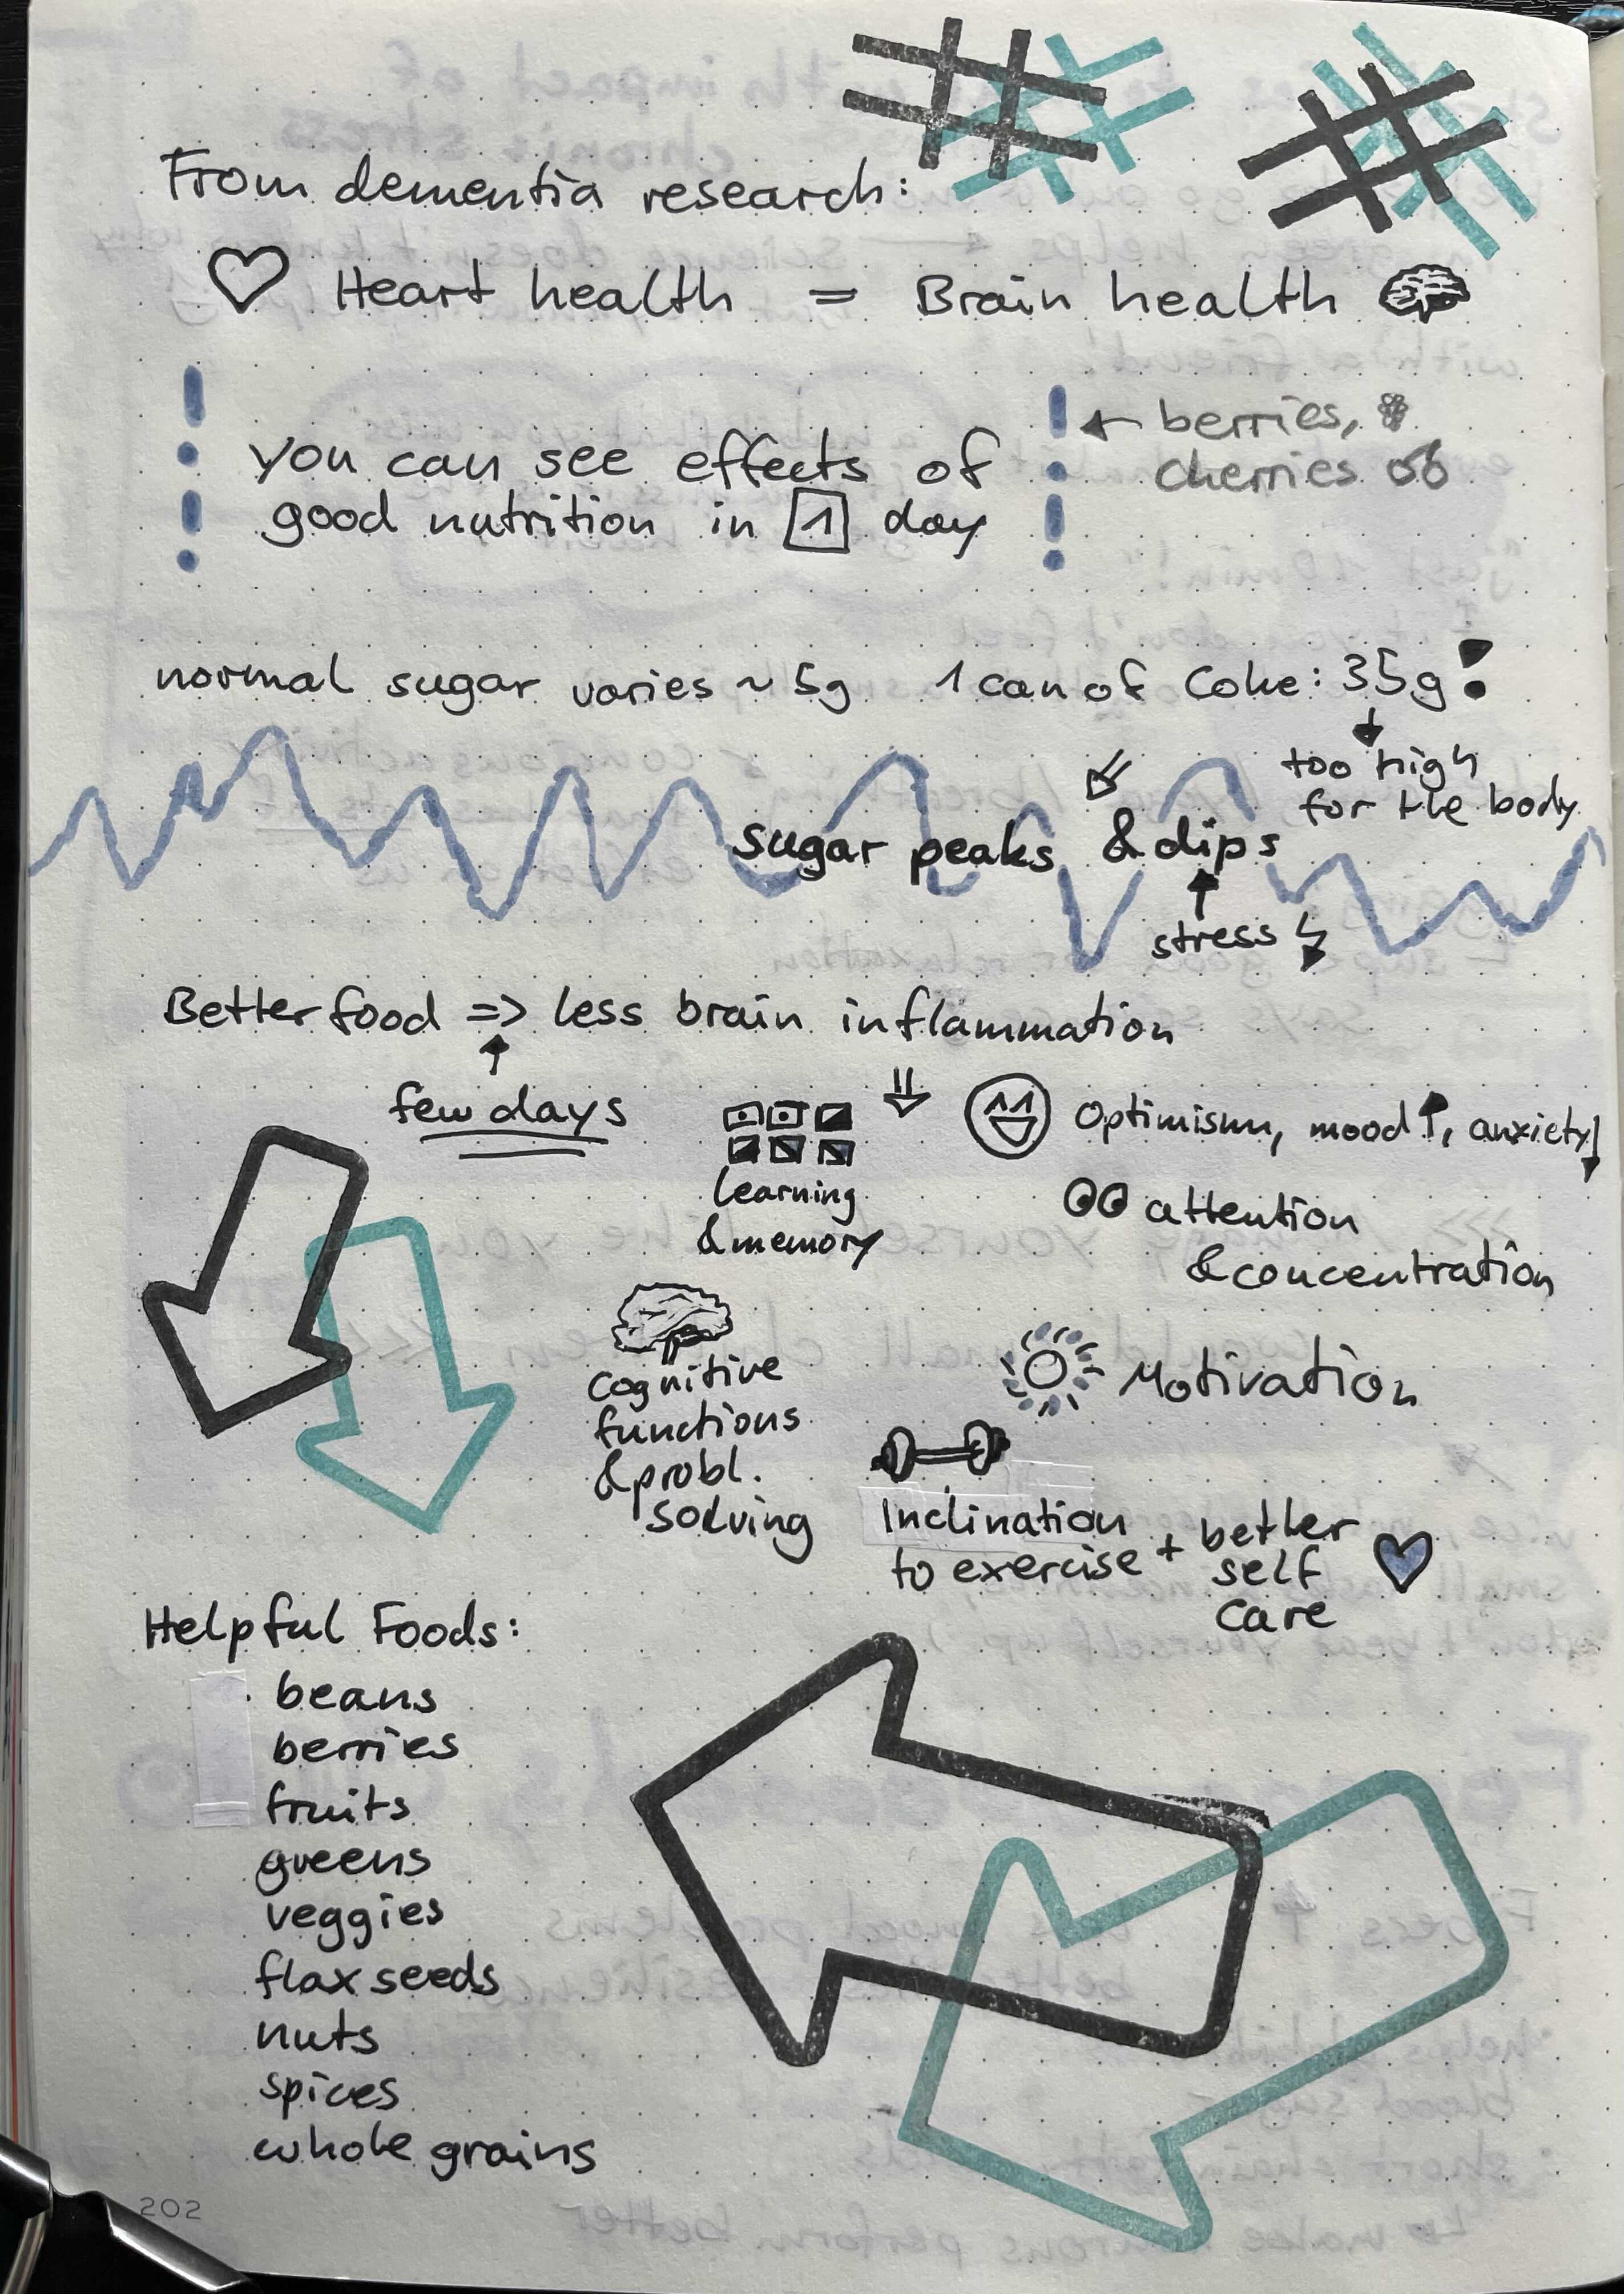 From dementia research:
Heart health = Brain health
you can see effects of
good nutrition in 1 day
← berries,
cherries
normal sugar varies ~ 5g 1 can of Coke: 35g!
too high
for the body
sugar peaks & dips
stress
Better food => less brain inflammation
few days
learning
& memory
Optimism, mood ↑, anxiety ↓
attention
& concentration
cognitive
functions
& probl.
solving
Motivation
Inclination
to exercise + better
self
care
Helpful Foods:
beans
berries
fruits
greens
veggies
flax seeds
nuts
spices
whole grains
202